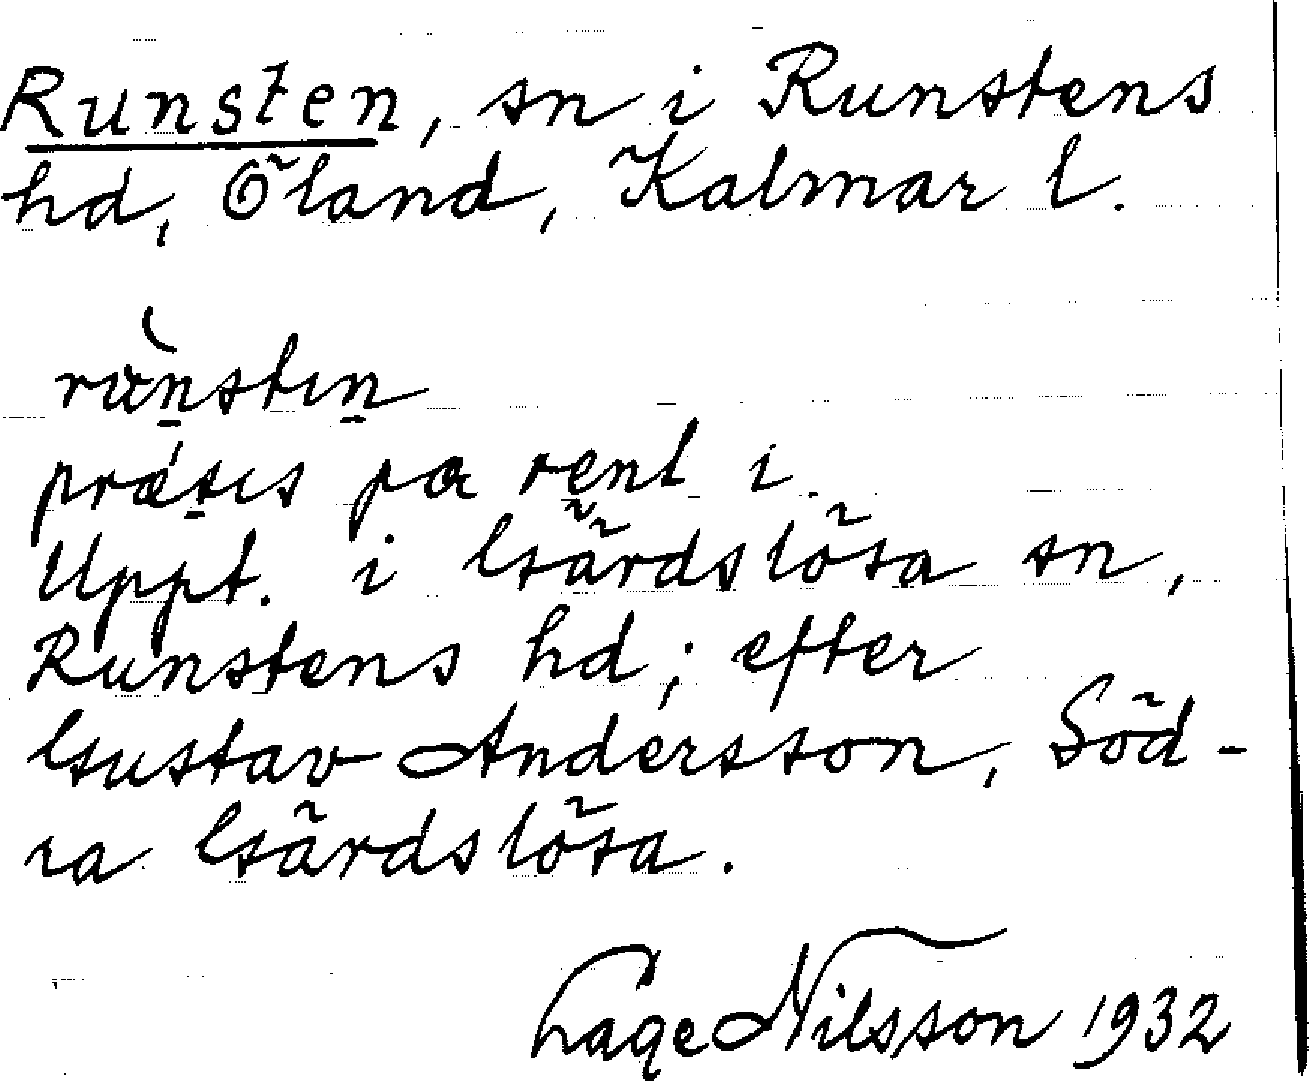 Runsten, sn i Runstens
hd, Öland, Kalmar l.
runstın
prǽsıs pa rent i.
Uppt. i Gärdslösa sn,
Runstens hd; efter
Gustav Andersson, Söd-
ra Gärdslösa.
Lage Nilsson 1932